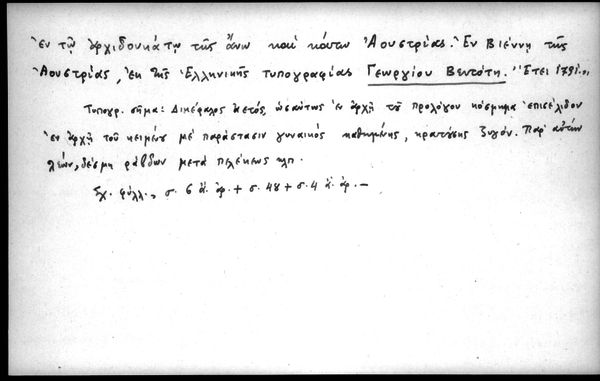 ἐν τῷ ἀρχιδουκάτῳ τῆς ἄνω καὶ κάτω Ἀουστρίας. Ἐν Βιέννῃ τῆς
Ἀουστρίας, ἐκ τῆς Ἑλληνικῆς τυπογραφίας Γεωργίου Βεντότη. Ἔτει 1791."
Τυπογρ. σῆμα: Δικέφαλος ἀετός, ὡσαύτως ἐν ἀρχῇ τοῦ προλόγου κόσμημα ἐπισέλιδον
ἐν ἀρχῇ τοῦ κειμένου μὲ παράστασιν γυναικὸς καθημένης, κρατούσης ζυγόν. Παρ' αὐτὴν
λέων, δέσμη ράβδων μετὰ πελέκεως κλπ.
Σχ. φύλλ., σ. 6 ἄ. ἀρ. + σ. 48 + σ. 4 ἄ. ἀρ. —